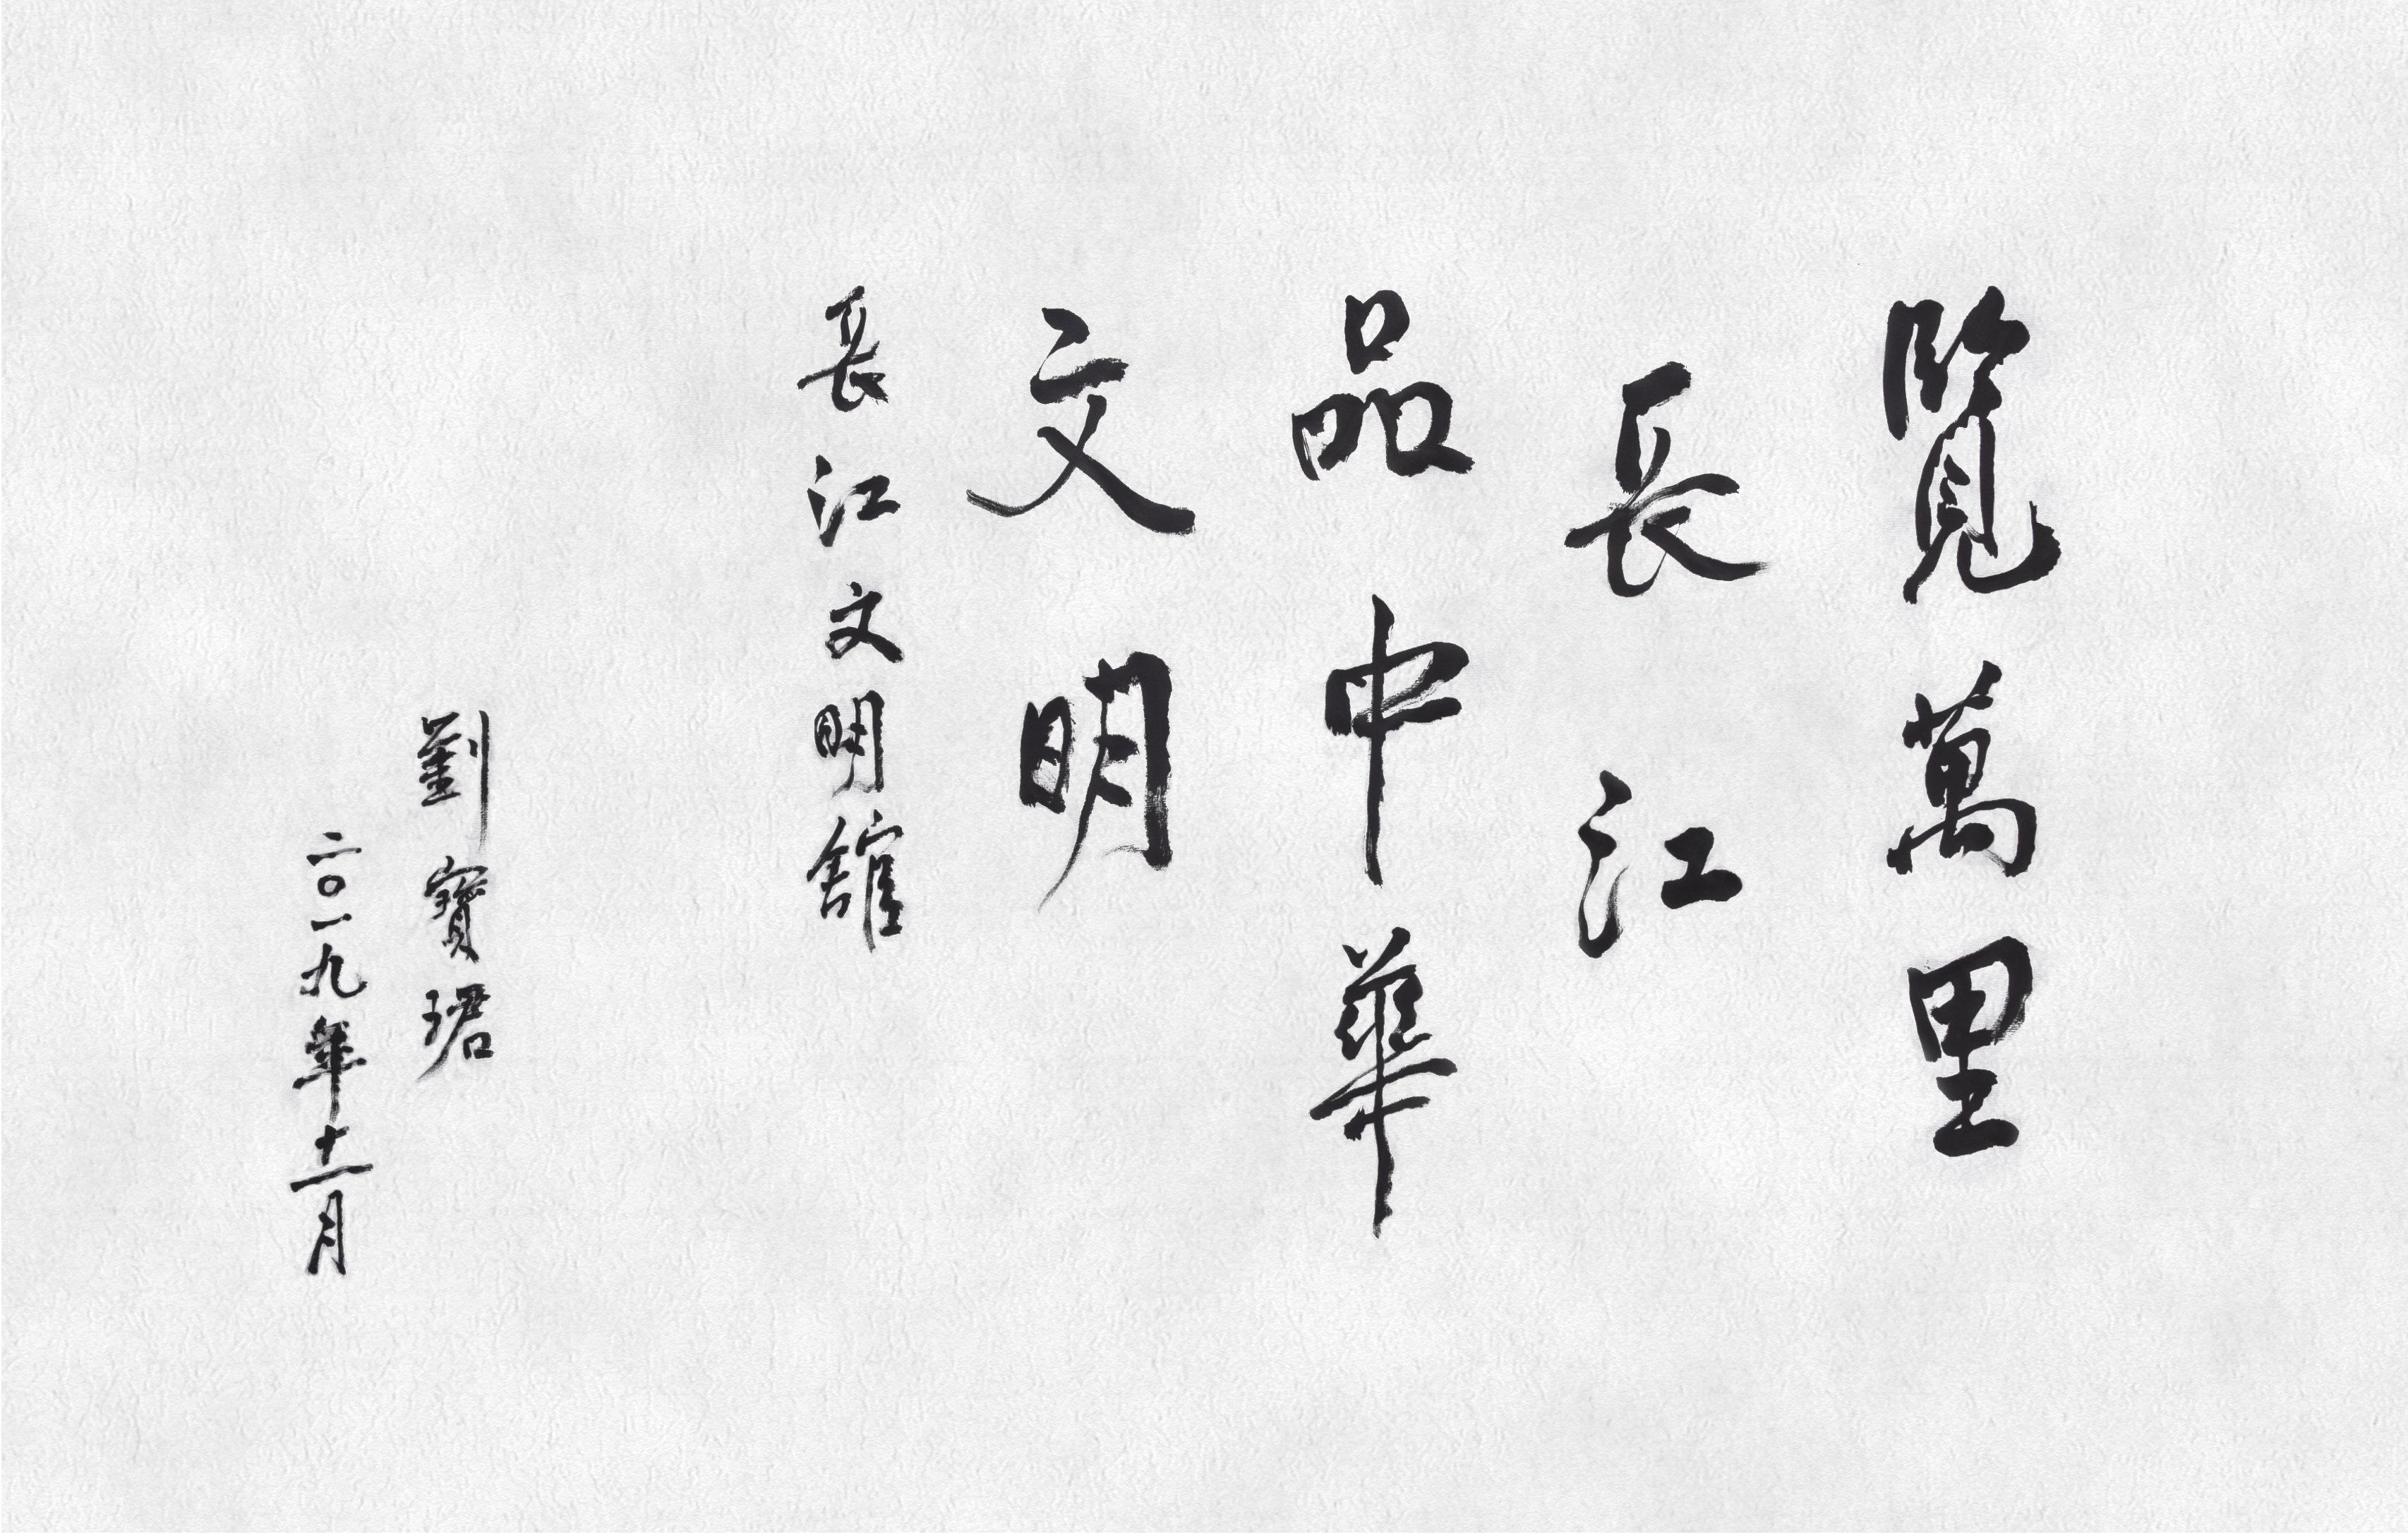 覧萬里
長江
品中華
文明
長江文明舘
劉寶珺
二〇一九年十一月